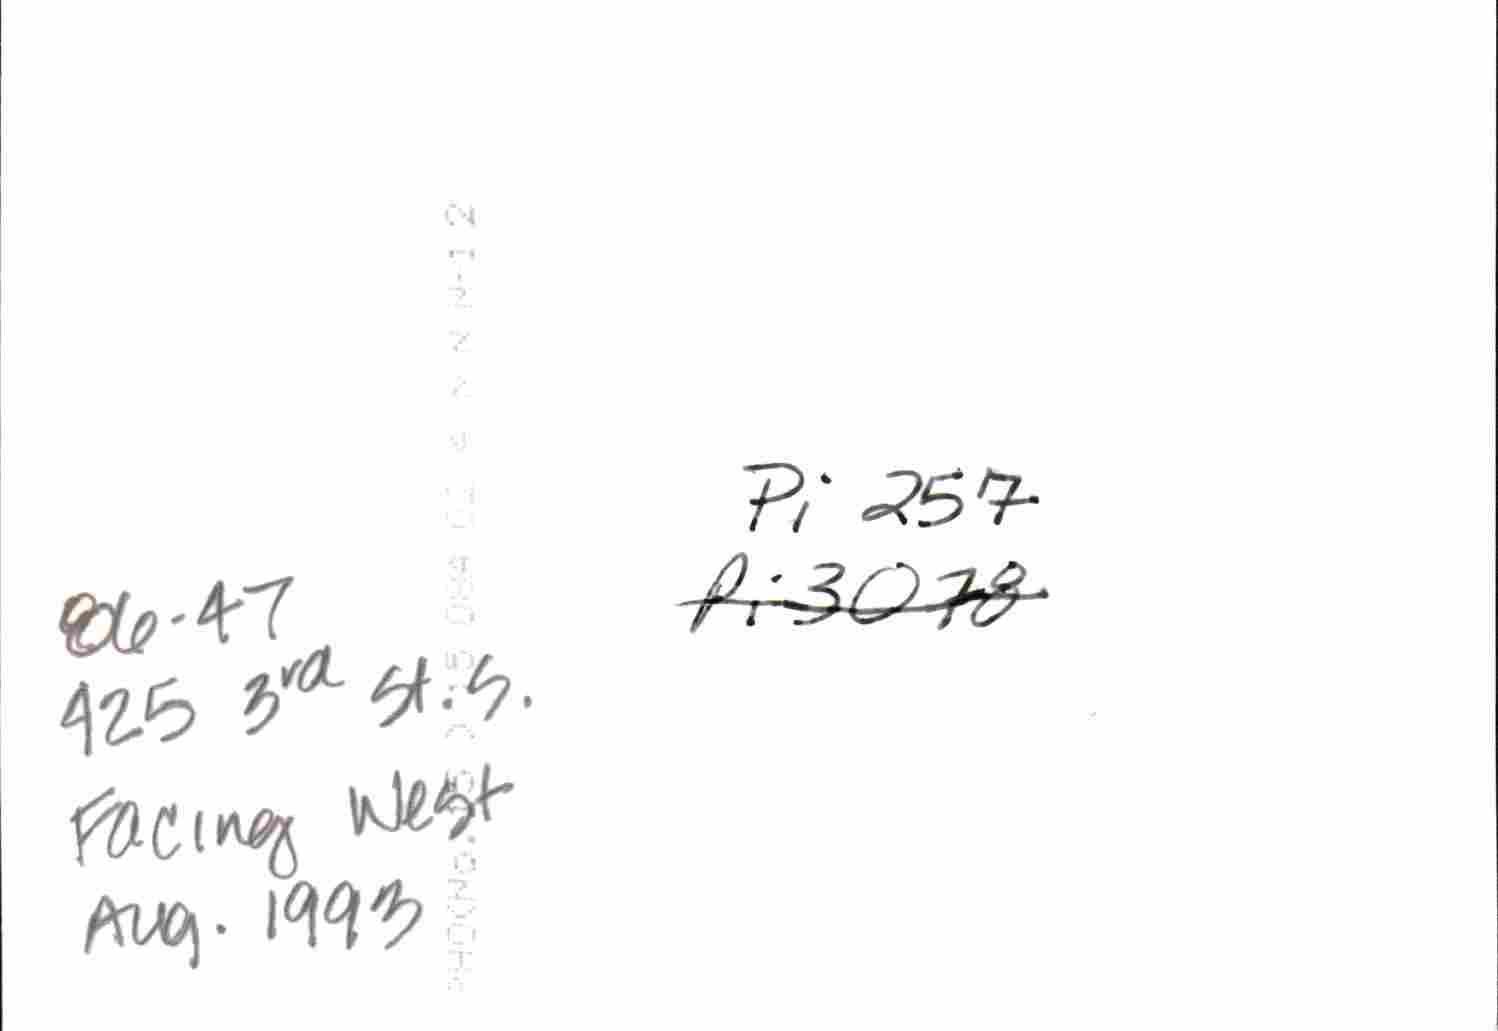 06-47
425 3rd St. S.
Facing West
Aug. 1993
Pi 257
Pi 3078